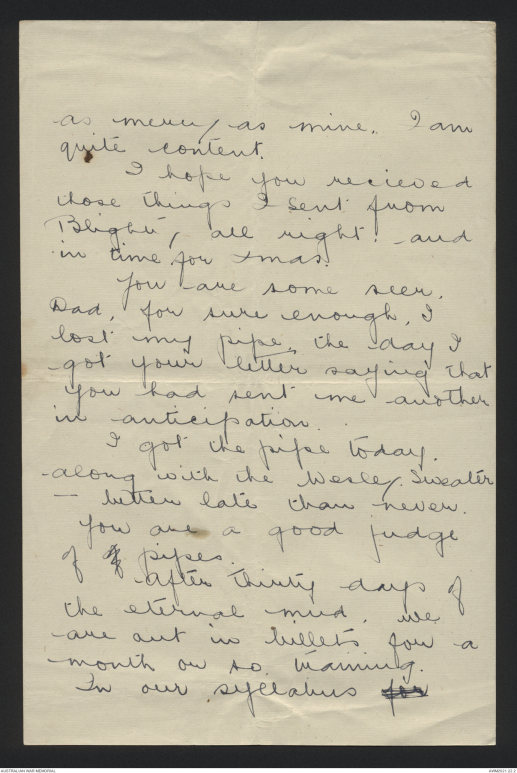 as merry as mine. I am
quite content.
I hope you recieved
those things I sent from
Blighty, all right. and
in time for Xmas.
You are some seer,
Dad, for sure enough, I
lost my pipe, the day I
got your letter saying that
you had sent me another
in anticipation.
I got the pipe today.
along with the Wesley Sweater
— better late than never.
You are a good judge
of pipes.
After thirty days of
the eternal mud, we
are out in billets for a
month or so training.
In our syllabus for
AUSTRALIAN WAR MEMORIAL
AWM2021.22.2